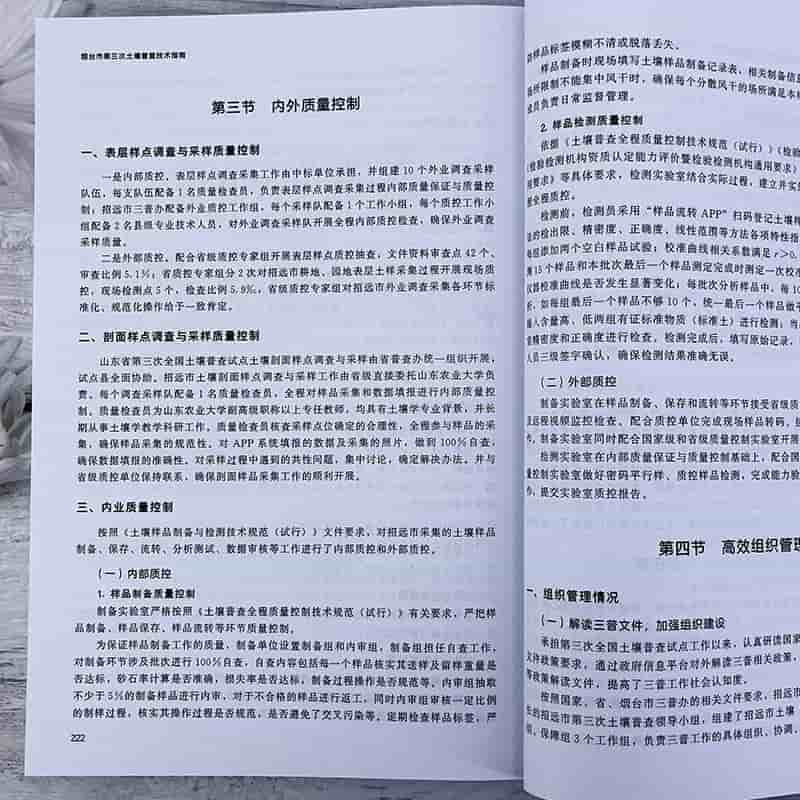 烟台市第三次土壤普查技术指南
第三节 内外质量控制
一、表层样点调查与采样质量控制
一是内部质控。表层样点调查采集工作由中标单位承担，并组建 10 个外业调查采样
队伍，每支队伍配备 1 名质量检查员，负责表层样点调查采集过程内部质量保证与质量控
制；招远市三普办配备外业质控工作组，每个采样队配备 1 个工作小组，每个质控工作小
组配备 2 名县级专业技术人员，对外业调查采样队开展全程内部质控检查，确保外业调查
采样质量。
二是外部质控。配合省级质控专家组开展表层样点质控抽查，文件资料审查点 42 个、
审查比例 5.1%；省质控专家组分 2 次对招远市耕地、园地表层土样采集过程开展现场质
控，现场检测点 5 个，检查比例 5.9‰，省级质控专家组对招远市外业调查采集各环节标
准化、规范化操作给于一致肯定。
二、剖面样点调查与采样质量控制
山东省第三次全国土壤普查试点土壤剖面样点调查与采样由省普查办统一组织开展，
试点县全面协助。招远市土壤剖面样点调查与采样工作由省级直接委托山东农业大学负
责、每个调查采样队配备 1 名质量检查员，全程对样品采集和数据填报进行内部质量控
制。质量检查员为山东农业大学副高级职称以上专任教师，均具有土壤学专业背景，并长
期从事土壤学教学科研工作。质量检查员核查采样点位确定的合理性，全程参与样品的采
集，确保样品采集的规范性。对 APP 系统填报的数据及采集的照片，做到 100%自查，
确保数据填报的准确性。对采样过程中遇到的共性问题，集中讨论，确定解决办法。并与
省级质控单位保持联系，确保剖面样品采集工作的顺利开展。
三、内业质量控制
按照《土壤样品制备与检测技术规范（试行）》文件要求，对招远市采集的土壤样品
制备、保存、流转、分析测试、数据审核等工作进行了内部质控和外部质控。
（一）内部质控
1. 样品制备质量控制
制备实验室严格按照《土壤普查全程质量控制技术规范（试行）》有关要求，严把样
品制备、样品保存、样品流转等环节质量控制。
为保证样品制备工作的质量，制备单位设置制备组和内审组，制备组担任自查工作，
对制备环节涉及批次进行 100%自查，自查内容包括每一个样品核实其送样及留样重量是
否达标，砂石率计算是否准确，损失率是否达标，制备过程操作是否规范等。内审组抽取
不少于 5%的制备样品进行内审，对于不合格的样品进行返工，同时内审组审核一定比例
的制样过程，核实其操作过程是否规范，是否避免了交叉污染等。定期检查样品标签，严
222
样品标签模糊不清或脱落丢失。
样品制备时现场填写土壤样品制备记录表，相关制备信息
场所限制不能集中风干时，确保每个分散风干的场所满足本
成员负责日常监督管理。
2. 样品检测质量控制
依据《土壤普查全程质量控制技术规范（试行）》《检验
检验检测机构资质认定能力评价暨检验检测机构通用要求》
要求》等具体要求，检测实验室结合实际过程，建立并实
全程质控。
检测前，检测员采用“样品流转 APP”扫码登记土壤样
的检出限、精密度、正确度、线性范围等方法各项特性指
每组添加两个空白样品试验；校准曲线相关系数满足 r＞0.
15 个样品和本批次最后一个样品测定完成时测定一次校
仪器校准曲线是否发生显著变化；每批次分析样品中，每 10
，如每组最后一个样品不够 10 个，统一最后一个样品做平
插入含量高、低两组有证标准物质（标准土）进行检测；当
精密度和正确度进行检查。检测完成后，填写原始记录，
人员三级签字确认，确保检测结果准确无误。
（二）外部质控
制备实验室在样品制备、保存和流转等环节接受省级质
及远程视频监控检查，配合质控单位完成现场样品转码，
，制备实验室同时配合国家级和省级质量控制实验室开展
检测实验室在内部质量保证与质量控制基础上，配合国
量控制实验室做好密码平行样、质控样品检测，完成能力验
，提交实验室质控报告。
第四节 高效组织管理
一、组织管理情况
（一）解读三普文件，加强组织建设
承担第三次全国土壤普查试点工作以来，认真研读国家
文件政策要求，通过政府信息平台对外解读三普相关政策，
等政策解读文件，提高了三普工作社会认知度。
按照国家、省、烟台市三普办的相关文件要求，招远市
的招远市第三次土壤普查领导小组，组建了招远市土壤
，保障组 3 个工作组，负责三普工作的具体组织、协调、